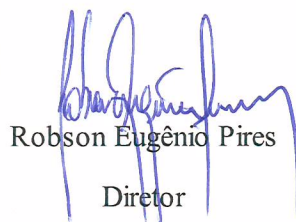 Robson Eugênio Pires
Diretor